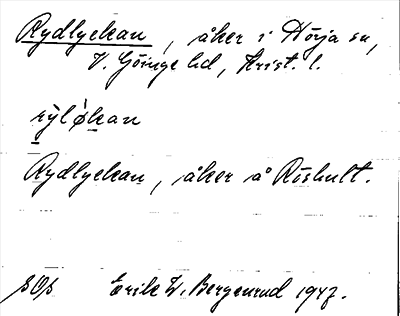 Rydlyckan, åker i Hörja sn,
V. Göinge hd, Krist. l.
rȳl ø̀kan
Rydlyckan, åker å Röshult.
SOS Erik W. Bergenrud 1947.